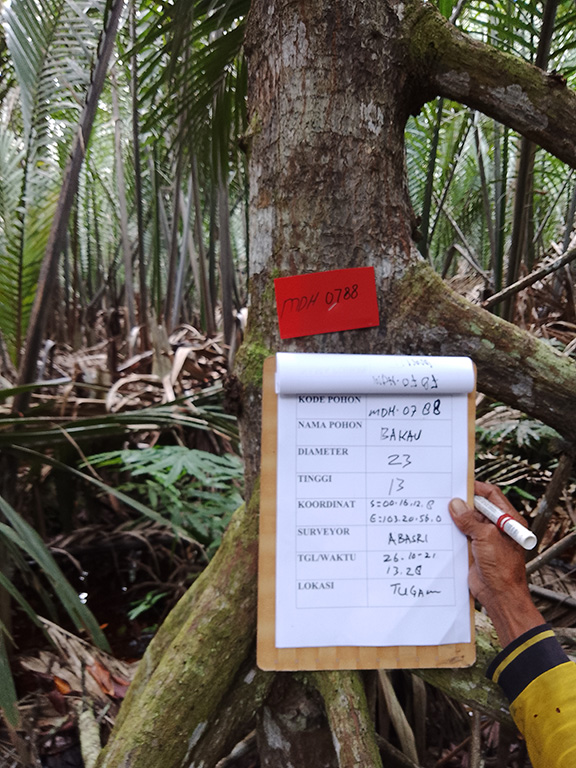 MDH 0788
KODE POHON MDH.07 88
NAMA POHON BAKAU
DIAMETER 23
TINGGI 13
KOORDINAT S=00.16.12.8
E=103.20.56.0
SURVEYOR ABASRI
TGL/WAKTU 26-10-21
13.28
LOKASI